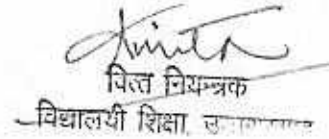 वित्त नियन्त्रक
विद्यालयी शिक्षा,